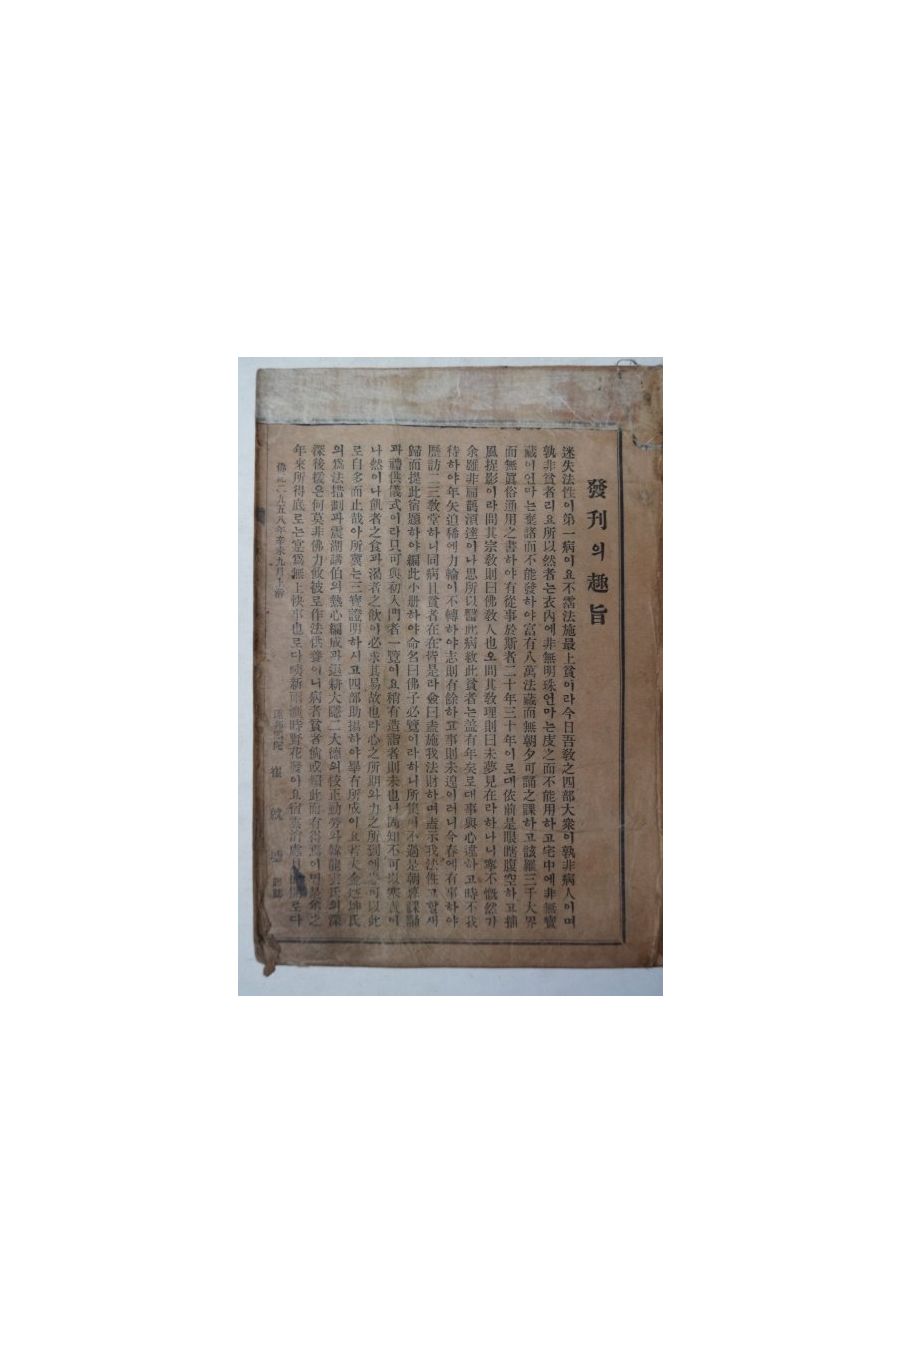 發刊의趣旨
迷失法性이第一病이요不霑法施最上貧이라今日吾敎之四部大衆이孰非病人이며
孰非貧者리요所以然者는衣內에非無明珠언마는度之而不能用하고宅中에非無寶
藏이언마는棄諸而不能發하야富有八萬法藏而無朝夕可誦之課하고該羅三千大界
而無眞俗通用之書하야有從事於斯者二十年三十年이로대依前是眼瞎腹空하고捕
風捉影이라間其宗敎則曰佛敎人也오間其敎理則曰未夢見在라하나니寧不慨然가
余雖非扁鵲須達이나思所以醫此病救此貧者는盖有年矣로대事與心違하고時不我
待하야年矢迫稀에力輪이不轉하야志則有餘하고事則未遑이러니今春에有事하야
歷訪二三敎堂하니同病且貧者在在皆是라僉曰盍施我法財하며盍示我法性고할새
歸而提此宿題하야編此小册하야命名曰佛子必覽이라하니所集이不過是朝暮課誦
과禮供儀式이라只可與初入門者一覽이요稍有造詣者則未也니固知不可以
나然이나飢者之食과渴者之飮이必求其易故也라心之所期와力之所到에 可以此
로自多而止哉아所冀는三寶證明하시고四部助揚하야畢有所成이요 大金 坤氏
의爲法措劃과震湖講伯의熱心編成과退耕大隱二大德의校正勤勞와 龍 氏의深
深後援은何莫非佛力攸被로作法供養이니病者貧者倘或賴此而有得焉이면是余之
年來所得底로는 爲無上快事也로다 新雨 時野花發이요宿雲 處 로다
佛紀二九五八年辛未九月 澣
崔 識